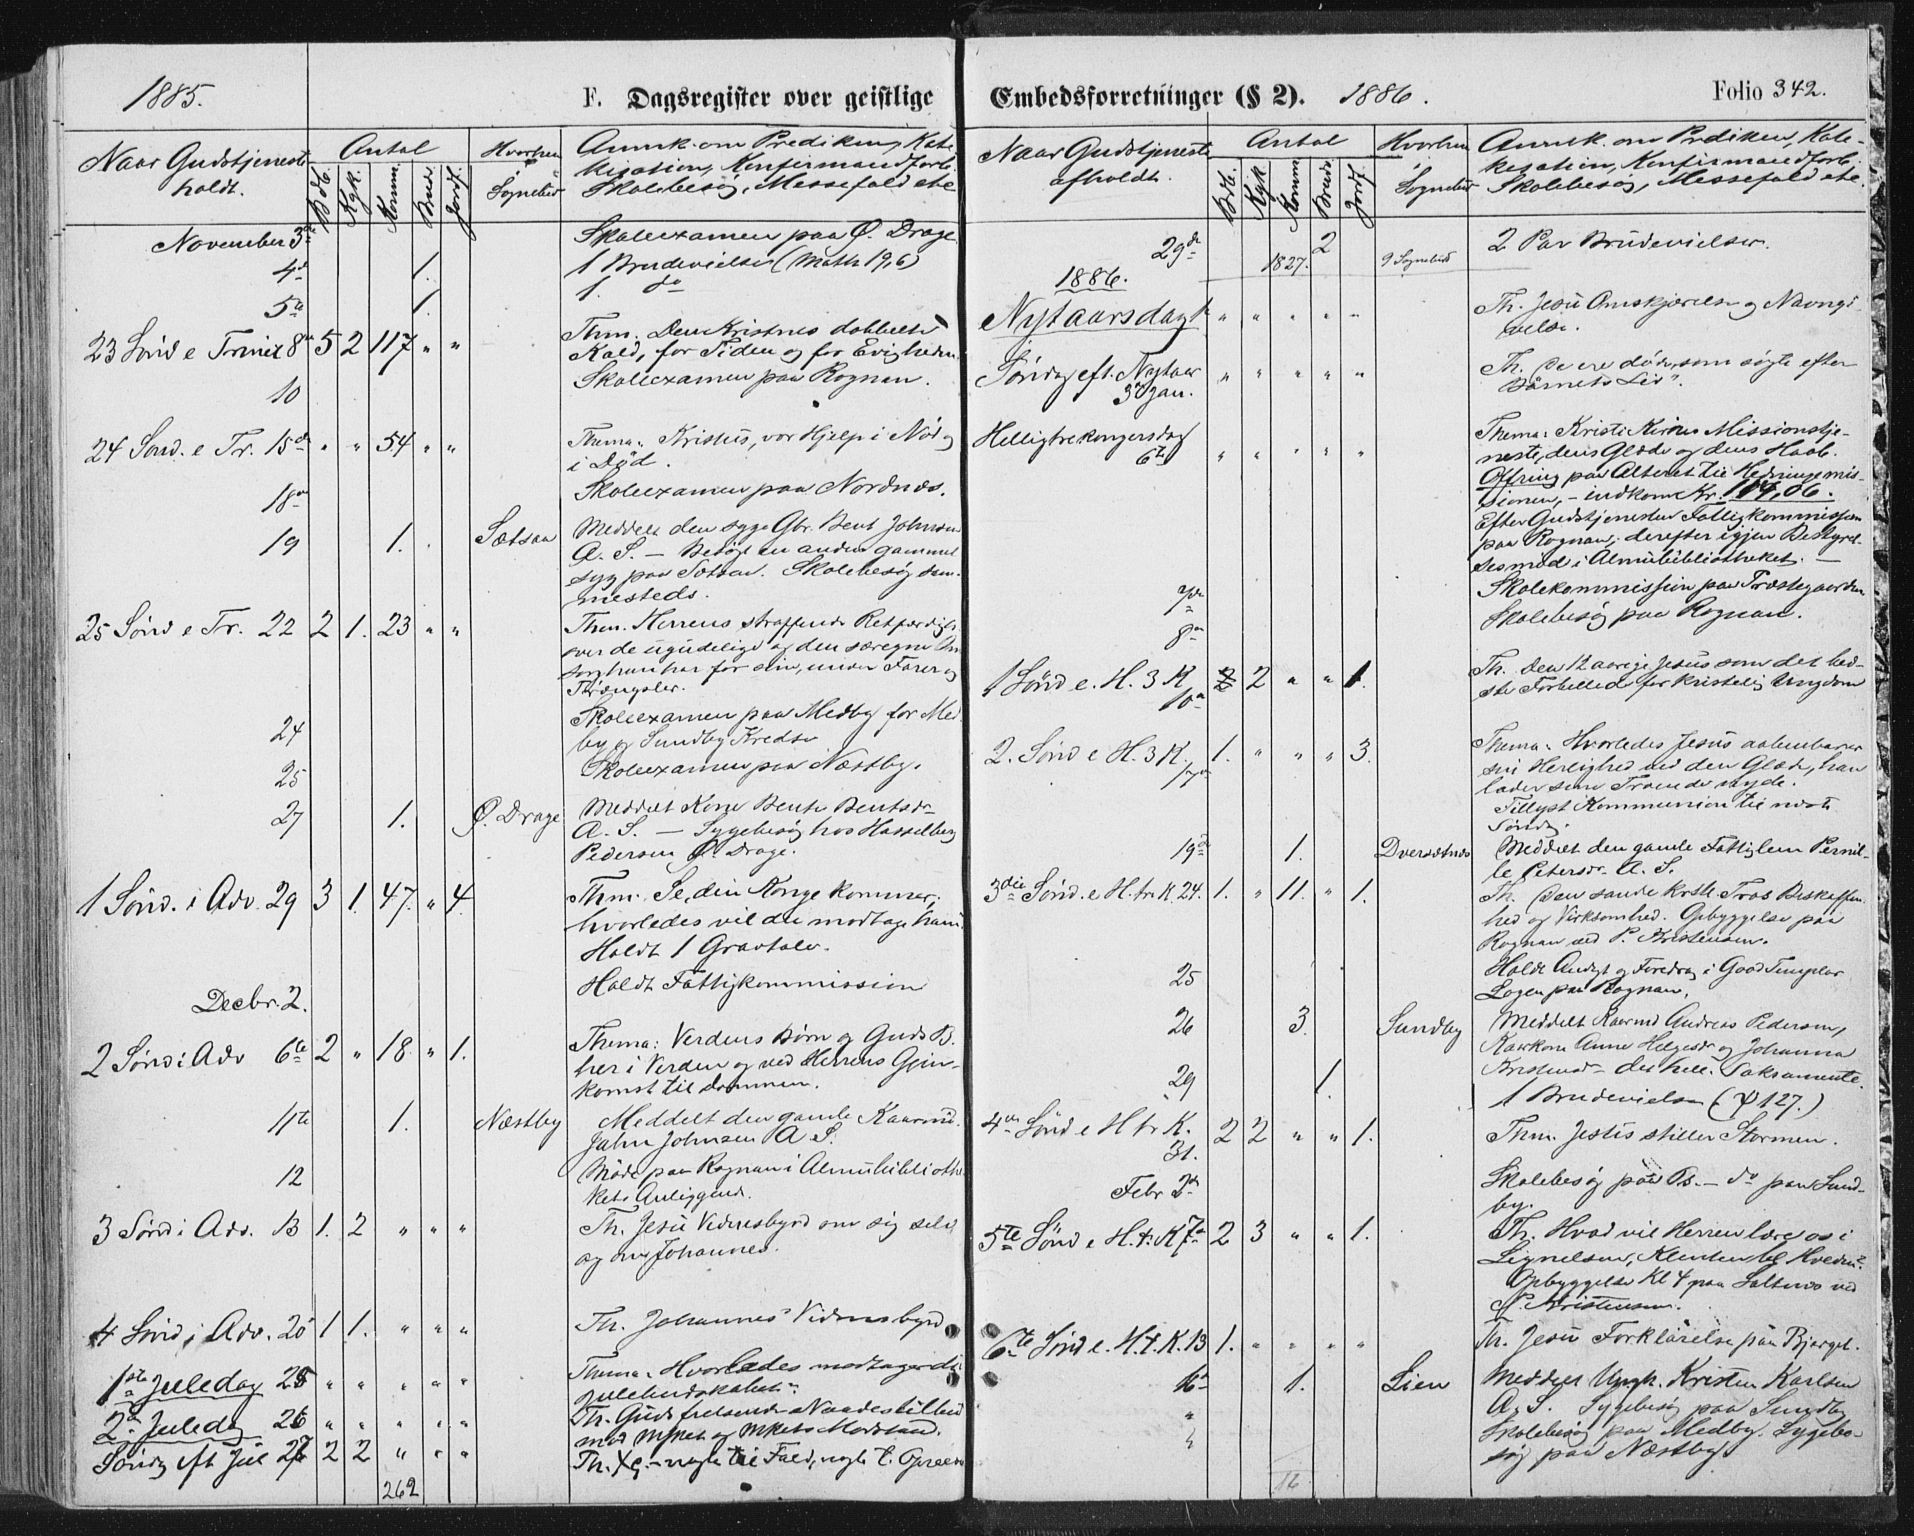 1885.
F. Dagsregister over geistlige
Naar Gudstjeneste
holdt.
Antal
Bdb.
Kgk.
Komm.
Brud
Jordf.
Hvorhen
Sognebud
Anmk. om Prediken, Kate-
kisation, Konfirmandforb.
Skolebesøg, Messefald etc
November 3die
Skoleexamen paa Ø. Drage
4de 1. 1 Brudevielse (Math 19,6)
5te 1. 1. do
23 Sønd e Trinit 8de 5 2 117 " "
Thm. Den Kristnes dobbelte
Kald, for Tiden og for Evigheden.
10
Skoleexamen paa Rognan.
24 Sønd. e Tr. 15de " " 54 " "
Thema: Kristus, vor Hjelp i Nød og
i Død.
18de
Skoleexamen paa Nordnæs.
19 1. Sætsaa
Meddelt den syge Gbr. Bent Johnsen
A. S. — Besøgt en anden gammel
syg paa Sætsaa. Skolebesøg sam-
mesteds.
25 Sønd e Tr. 22 2 1. 23 " "
Them. Herrens straffende Retfærdigh.
over de ugudelige og den særegne Om
sorg han har for sine, under Farer og
Trængsler.
24
Skoleexamen paa Medby for Med
by og Sundby Kredse
25
Skoleexamen paa Næstby.
27 1. Ø. Drage
Meddelt Kone Bente Bentsdr
A. S. — Sygebesøg hos Hasselberg
Pedersen Ø. Drage.
1 Sønd. i Adv. 29 3 1. 47. " 4.
Thm. Se, din Konge kommer;
hvorledes vil du modtage ham.
Holdt 1 Gravtale.
Decbr. 2.
Holdt Fattigkommission
2 Sønd i Adv 6te 2 " 18. " 1.
Thema: Verdens Børn og Guds B.
her i Verden og ved Herrens Gjen-
komst til dommen.
11te 1. Næstby
Meddelt den gamle Kaarmd.
Jahn Johnsen A S.
12
Møde paa Rognan i Almubibliothe
kets Anliggende.
3 Sønd i Adv. 13 1. 2 " " "
Th. Jesu Vidnesbyrd om sig selv
og om Johannes.
4 Sønd i Adv. 20 1 1. " " "
Th. Johannes' Vidnesbyrd
1ste Juledag 25 " " " " "
Thema: Hvorledes modtager du
Julebudskabet?
2den Juledag 26 " " " " "
Th. Guds frelsende Naadestilbud
mod Mørket og Mørkets Modstand.
Sønd eft Jul 27 2 2 " " "
Th. Xs - nogle til Fald, nogle t. Opreisn
262
Embedsforretninger (§ 2). 1886.
Folio 342.
Naar Gudstjeneste
afholdt.
Antal
Bdb.
Kgk
Komm.
Brud
Jordf.
Hvorhen
Sognebud
Anmk. om Prediken, Kate-
kisation, Konfirmandforb.
Skolebesøg, Messefald etc.
29de 2
2 Par Brudevielser.
1827. 9 Sognebud
1886.
Nytaarsdag " " " " "
Th. Jesu Omskjærelse og Navngi
velse.
Søndag eft. Nytaar " " " " "
3die Jan.
Th. De ere døde, som søgte efter
Barnets Liv".
Helligtrekongersdag
6te " " " " "
Thema: Kristi Kirkes Missionstje-
neste, dens Glæde og dens Haab.
Offring paa Alteret til Hedningemis-
sionen, - indkom Kr. 114,06.
Efter Gudstjenesten Fattigkommission
paa Rognan; derefter igjen Bestyrel-
sesmøde i Almubibliotheket. —
7de
Skolekommission paa Præstegaarden
8de
Skolebesøg paa Rognan.
1 Sønd e. H. 3 K 2 2 " " 1.
10de
Th. Den 12 aarige Jesus som det bed-
ste Forbillede for kristelig Ungdom
2. Sønd e H. 3 K. 1. " " " 3.
17de
Thema: Hvorledes Jesus aabenbarer
sin Herlighed ved den Glæde, han
lader sine Troende nyde.
Tillyst Kommunion til næste
Søndag.
19de 1. Dversetnæs
Meddelt den gamle Fattiglem Pernil-
le Petersdr A. S.
3die Sønd. e. H. tr. K. 24. 1. " 11. " 1.
Th. Den sande krstl. Tros Beskaffen
hed og Virksomhed. Opbyggelse paa
Rognan ved P. Kristensen.
25
Holdt Andagt og Foredrag i Good Templar
Logen paa Rognan.
26 3. Sundby
Meddelt Kaarmd Andreas Pedersen,
Kaarkone Anne Helgesdr og Johanna
Kristensdr det hell. Saksamente.
29 1.
1 Brudevielse (ψ 127.)
4de Sønd e H tr K. 2 2 " " 1.
31.
Thm. Jesus stiller Stormen.
Febr 3die
Skolebesøg paa Ps. - do paa Sund-
by.
5te Sønd e H. tr K 7de 2 3 " " 1.
Th. Hvad vil Herren lære os i
Lignelsen, Klinten bl Hveden?
Opbyggelse Kl 4 paa Saltnæs ved
P. Kristensen.
6te Sønd e. H. t. K. 13 1. " " " "
Th. Jesu Forklarelse paa Bjerget.
16de 1. Lien
Meddelt Ungk. Kristen Karlsen
A. S. Sygebesøg paa Sundby
"
Skolebesøg paa Medby. Sygebe-
søg paa Næstby
16